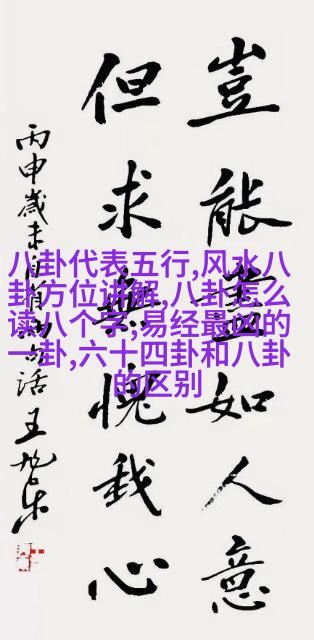 豈能盡如人意
但求無愧我心
丙申歲末自省句话 王旭东
八卦代表五行,风水八
卦方位讲解,八卦怎么
读八个字,易经最凶的
一卦,六十四卦和八卦
的区别